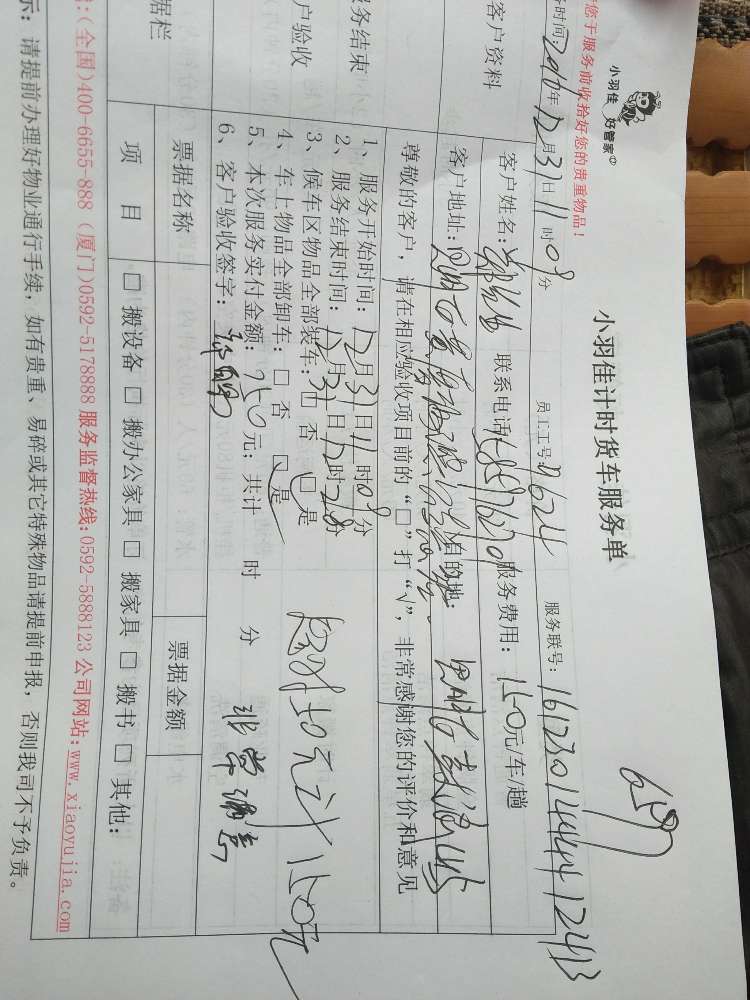 小羽佳 好管家
小羽佳计时货车服务单
659
您于服务前收拾好您的贵重物品！
时间: 2016年12月31日11时09分
员工工号 D624
服务联号: 161230144441 2413
客户资料
客户姓名:
联系电话:
服务费用: 150元/车/趟
客户地址:
目的地:
服务结束
客户验收
尊敬的客户，请在相应验收项目前的“□”打“√”，非常感谢您的评价和意见
1、服务开始时间: 12月31日11时09分
2、服务结束时间: 12月31日12时28分
3、候车区物品全部装车: □ 否 □ 是
4、车上物品全部卸车: □ 否 □ 是
5、本次服务实付金额: 150元; 共计 时 分
6、客户验收签字:
50元 150元
据栏
票据名称
票据金额
项 目
□ 搬设备 □ 搬办公家具 □ 搬家具 □ 搬书 □ 其他:
:(全国)400-6655-888 (厦门)0592-5178888 服务监督热线:0592-5888123 公司网站:www.xiaoyujia.com
示: 请提前办理好物业通行手续，如有贵重、易碎或其它特殊物品请提前申报，否则我司不予负责。